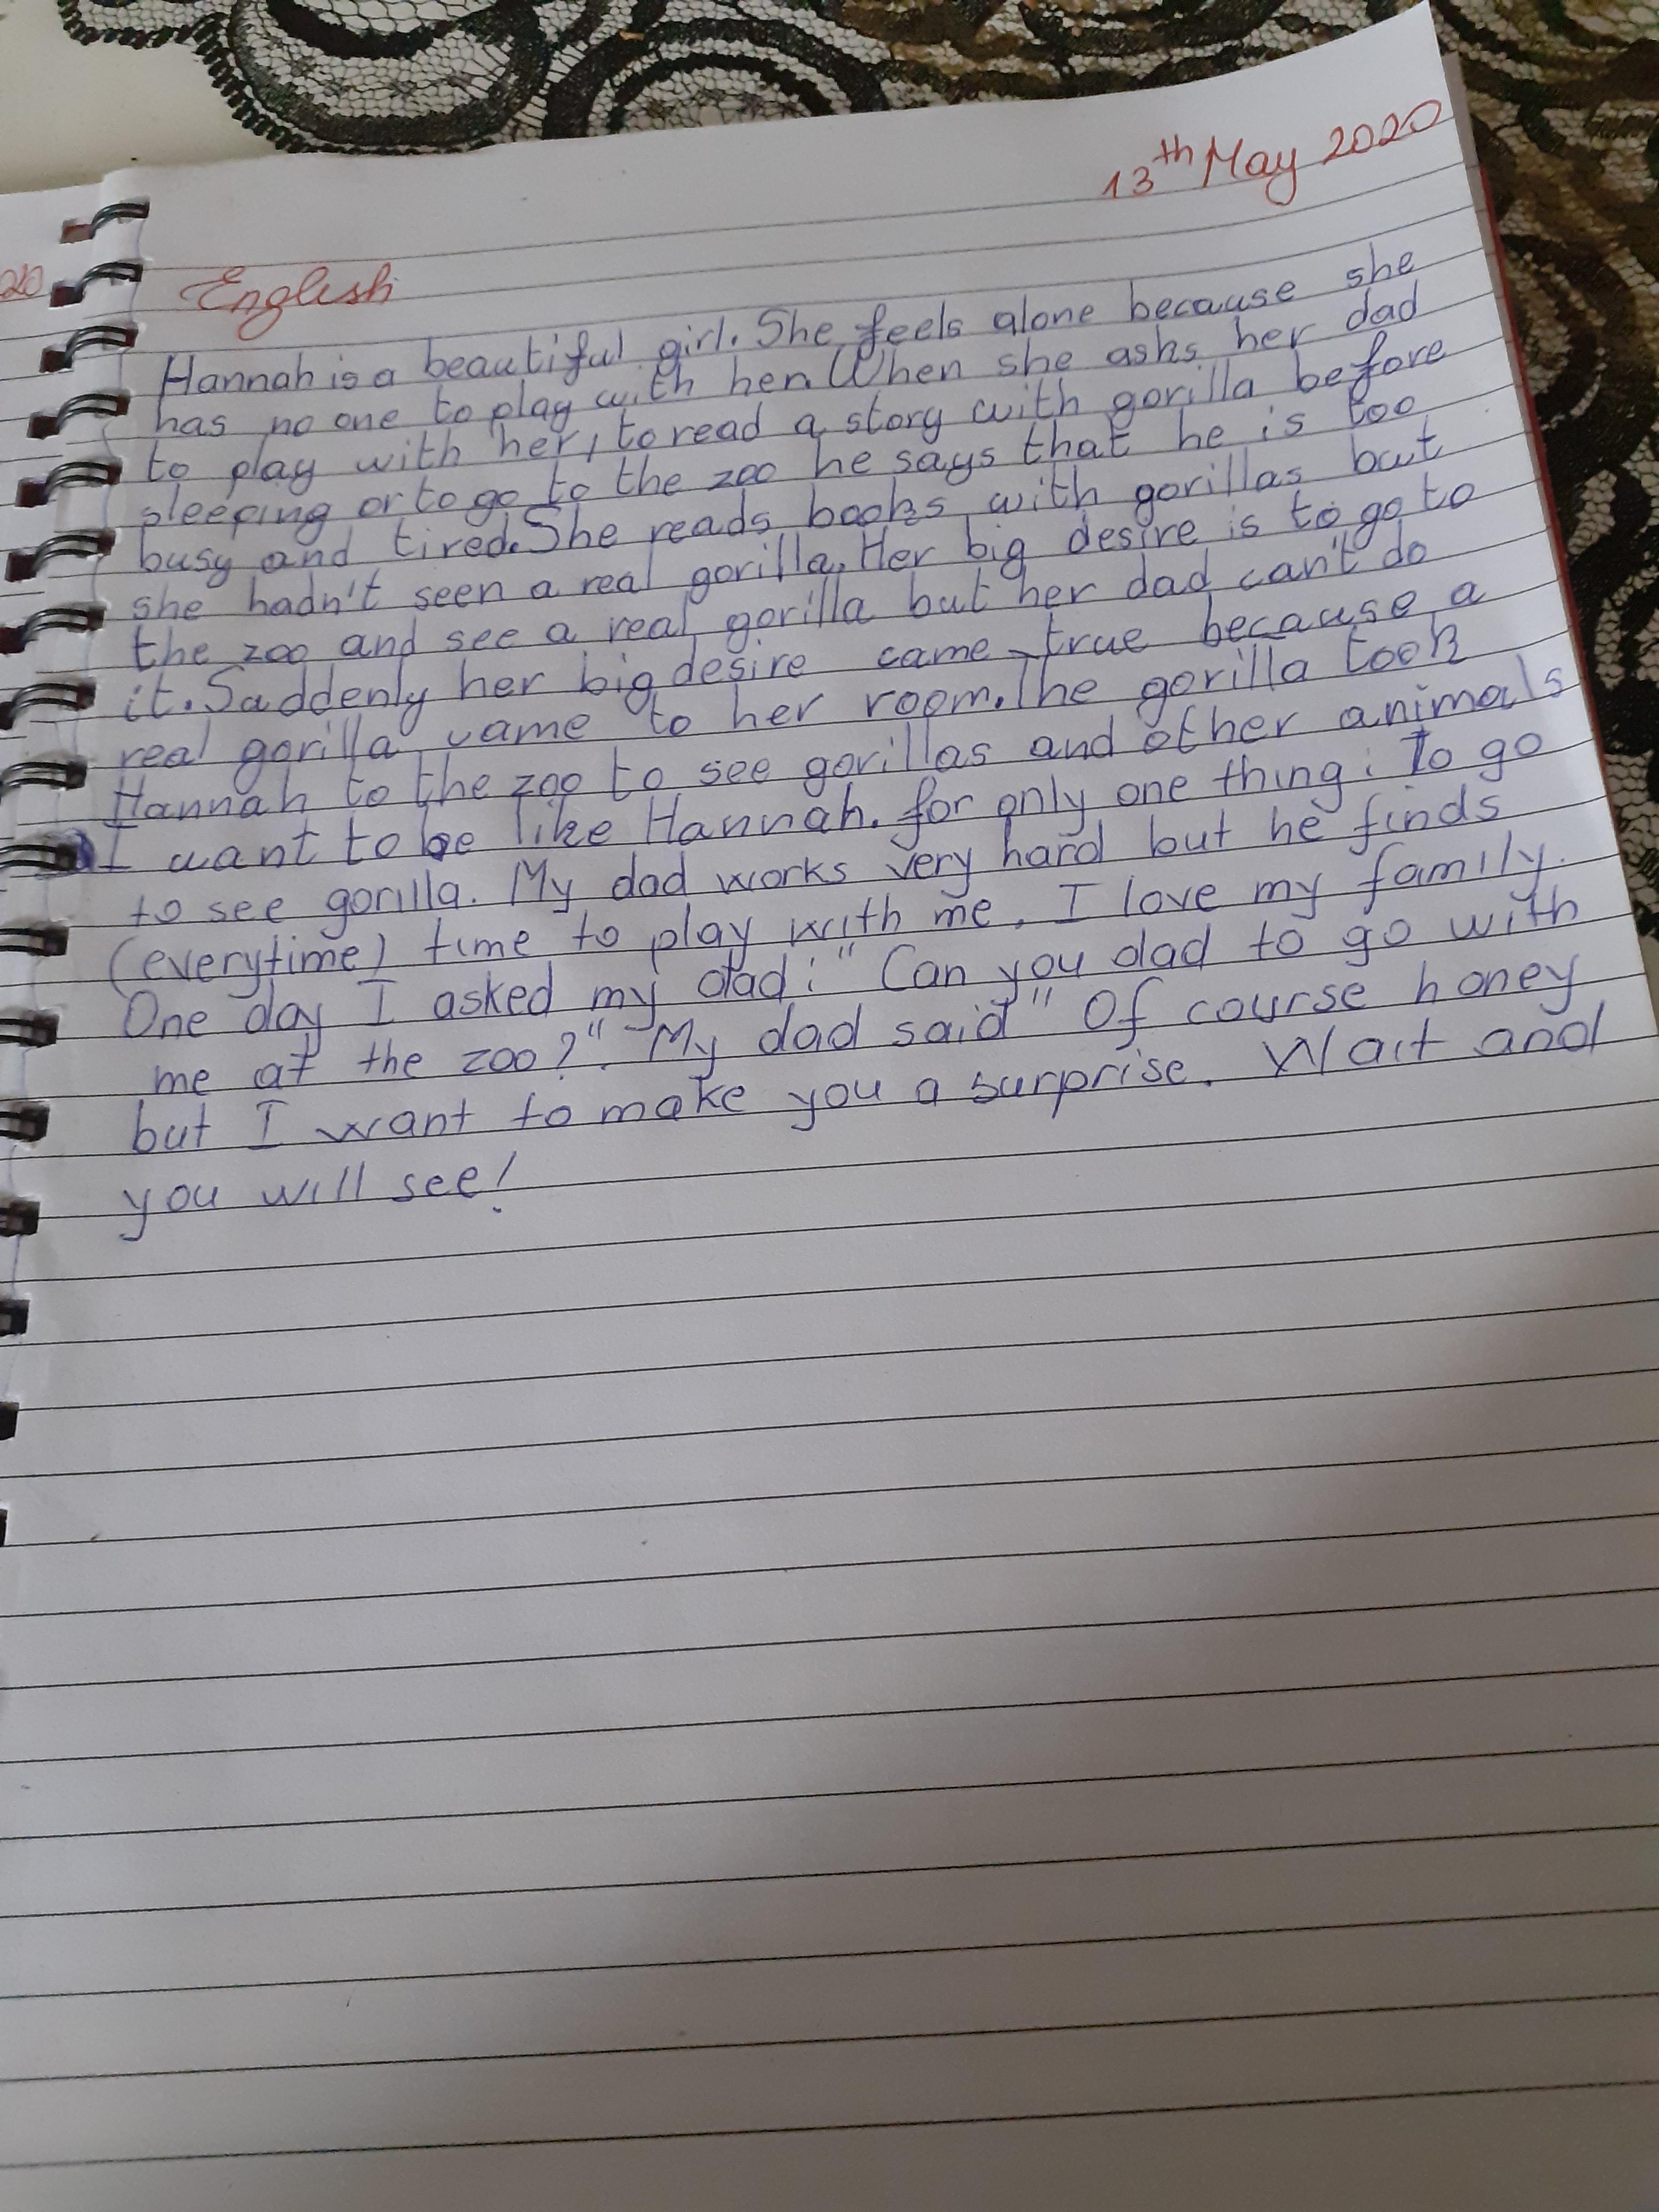 13th May 2020
20
English
Hannah is a beautiful girl. She feels alone because she
has no one to play with her. When she asks her dad
to play with her, to read a story with gorilla before
sleeping or to go to the zoo he says that he is too
busy and tired. She reads books with gorillas but
she hadn't seen a real gorilla. Her big desire is to go to
the zoo and see a real gorilla but her dad can't do
it. Suddenly her big desire came true because a
real gorilla came to her room. The gorilla took
Hannah to the zoo to see gorillas and other animals
I want to be like Hannah. for only one thing: To go
to see gorilla. My dad works very hard but he finds
(everytime) time to play with me. I love my family.
One day I asked my dad: "Can you dad to go with
me at the zoo?". My dad said "Of course honey
but I want to make you a surprise. Wait and
you will see!